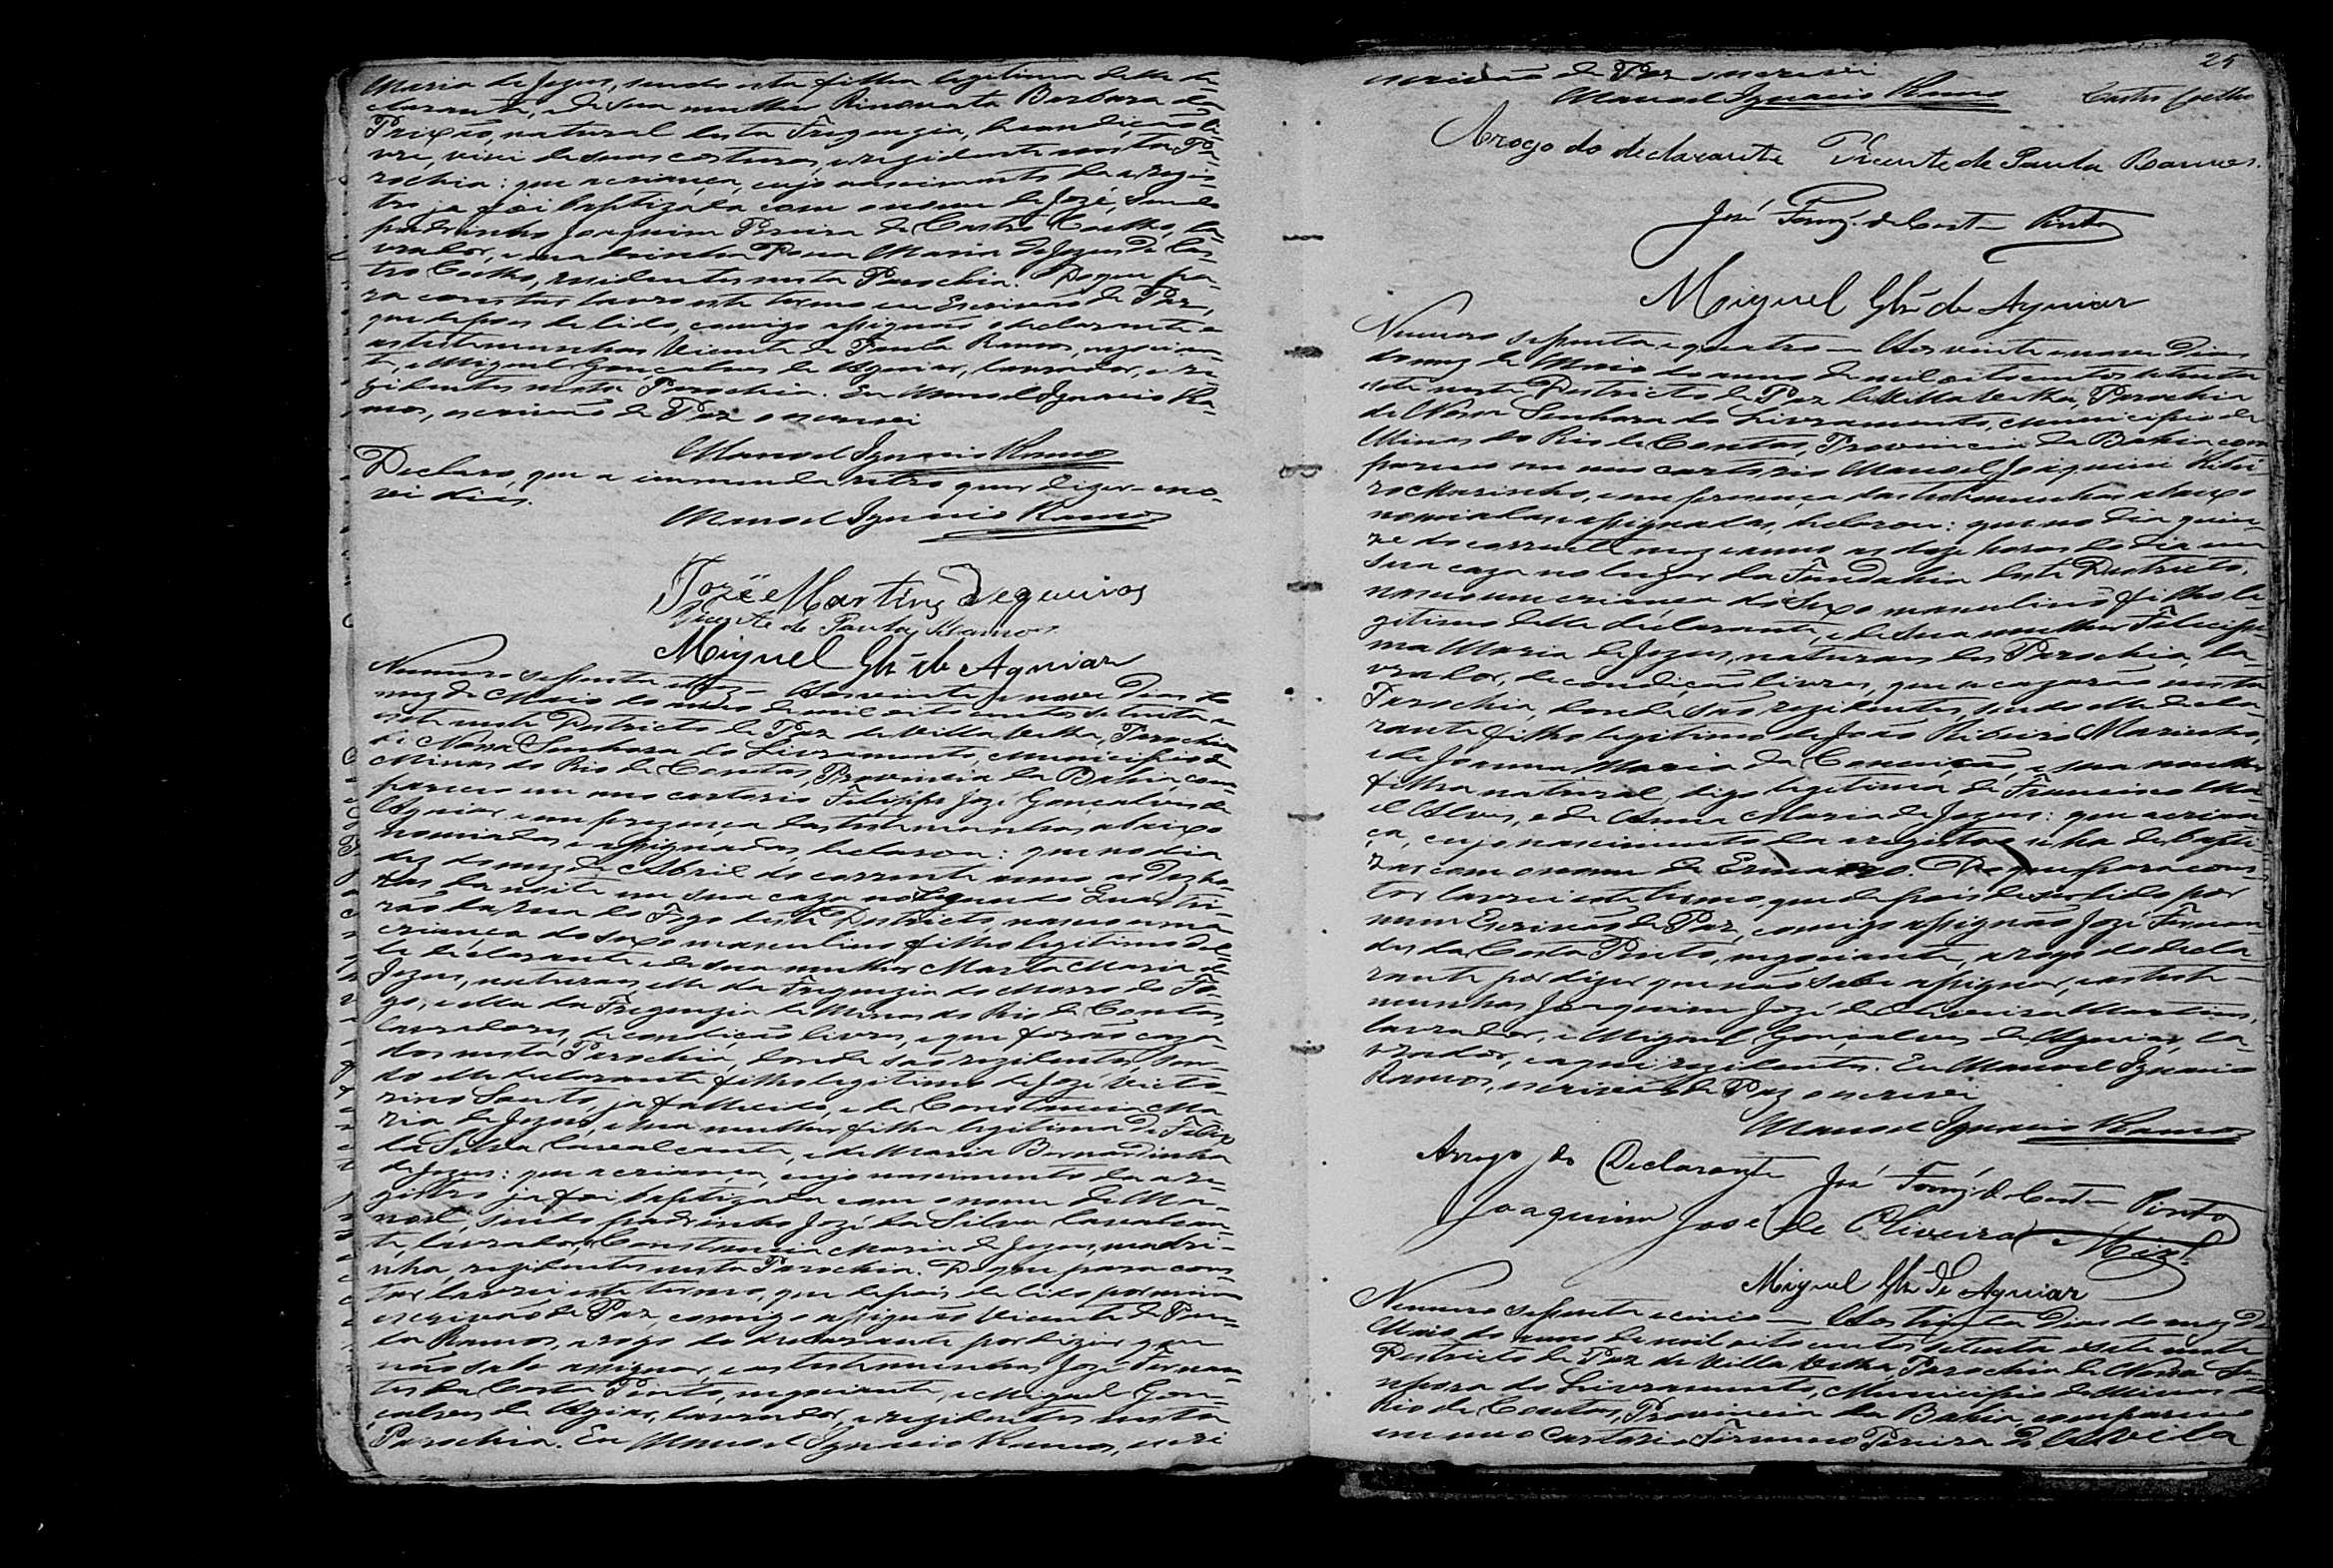 Maria de Jezus, sendo esta filha legitima delle de-
clarante, e de sua mulher Rinovata Barbara da
Paixão, natural desta Freguezia, de condição li-
vre, vive de suas costuras, e rezidente nesta Pa-
rochia: que a criança, cujo nascimento da a regis-
tro ja foi baptizada com o nome de Jozé, sendo
padrinho Joaquim Pereira de Castro Coelho, la-
vrador, e madrinha Dona Maria de Jezus de Cas-
tro Coelho, rezidentes nesta Parochia. Do que pa-
ra constar lavro este termo eu Escrivão de Paz,
que depois de lido, comigo assignão o declarante e
as testemunhas Vicente de Paula Ramos, negocian-
te, e Miguel Gonçalves de Aguiar, lavrador, e re-
zidentes nesta Parochia. Eu Manoel Ignacio Ra-
mos, escrivão de Paz o escrevi
Manoel Ignacio Ramos
Declaro, que a emmenda retro quer dizer - e no-
ve dias.
Manoel Ignacio Ramos
Jozé Martins Sequeiros
Vicente de Paula Ramos
Miguel Glz de Aguiar
Numero setenta e trez - Aos vinte e nove dias do
mez de Maio do anno de mil oito centos setenta e
sete neste Districto de Paz de Villa Velha, Parochia
de Nossa Senhora do Livramento, Municipio de
Minas do Rio de Contas, Provincia da Bahia, com-
pareceo em meo cartorio Filippe Jozé Gonçalves de
Aguiar, e em prezença das testemunhas abaixo
nomiadas e assignadas, declarou: que no dia
dez do mez de Abril do corrente anno as dez ho-
ras da noite em sua caza no Segundo Quartei-
rão da rua do Fogo deste Districto, nasceo uma
criança do sexo masculino filho legitimo del-
le declarante e de sua mulher Marta Maria de
Jezus, naturaes, elle da Freguezia do Morro do Fo-
go, e ella da Freguezia de Minas do Rio de Contas,
lavradores, de condição livres, e que forão caza-
dos nesta Parochia, donde são rezidentes, sen-
do elle declarante filho legitimo de Jozé Victo-
rino Santo, ja fallecido, e de Constancia Ma-
ria de Jezus, e sua mulher filha legitima de Felix
da Silva Cavalcante, e de Maria Bernardinha
de Jezus: que a criança, cujo nascimento da a re-
gistro ja foi baptizada com o nome de Ma-
noel, sendo padrinho Jozé da Silva Cavalcan-
te, lavrador, e Constancia Maria de Jezus, madri-
nha, rezidentes nesta Parochia. Do que para cons-
tar lavrei este termo, que depois de lido por mim
escrivão de Paz, comigo assignão Vicente de Pau-
la Ramos, a rogo do declarante por dizer que
não sabe assignar, e as testemunhas Jozé Fernan-
des da Costa Pinto, negociante, e Miguel Gon-
çalves de Aguiar, lavrador, e rezidentes nesta
Parochia. Eu Manoel Ignacio Ramos, escri
25
escrivão de Paz o escrevi
Manoel Ignacio Ramos
Castro Coelho
Arogo do declarante Vicente de Paula Ramos.
José Fernz. da Costa Pinto
Miguel Glz de Aguiar
Numero setenta e quatro - Aos vinte e nove dias
do mez de Maio do anno de mil oitocentos setenta
e sete neste Districto de Paz de Villa Velha, Parochia
de Nossa Senhora do Livramento, Municipio de
Minas do Rio de Contas, Provincia da Bahia, com
pareceo em meo cartorio Manoel Joaquim Ribei-
ro Marinho, e em prezença das testemunhas abaixo
nomiadas e assignadas, declarou: que no dia quin-
ze do corrente mez e anno as doze horas do dia em
sua caza no lugar da Fundahia deste Districto,
nasceo uma criança do sexo masculino filho le-
gitimo delle declarante, e de sua mulher Felicissi-
ma Maria de Jezus, naturaes desta Parochia, la-
vrador, de condição livres, que se cazarão nesta
Parochia, donde são rezidentes, sendo elle decla-
rante filho legitimo de João Ribeiro Marinho,
e de Joanna Maria da Conceição, e sua mulher
filha natural, digo legitima de Francisco Ma-
el Alves, e de Anna Maria de Jezus: que a crian-
ça, cujo nascimento da a registro se ha de bapti-
zar com o nome de . Do que para cons-
tar lavrei este termo que depois de ser lido por
mim Escrivão de Paz, comigo assignão Jozé Fernan-
des da Costa Pinto, negociante, a rogo do decla-
rante por dizer que não sabe assignar, e as teste-
munhas Joaquim Jozé de Oliveira Martins,
lavrador, e Miguel Gonçalves de Aguiar, la-
vrador, e aqui rezidentes. Eu Manoel Ignacio
Ramos, escrivão de Paz o escrevi
Manoel Ignacio Ramos
Arrogo do Declarante José Fernz. da Costa Pinto
Joaquim José de Oliveira
Miguel Glz de Aguiar
Numero setenta e cinco - Aos trinta dias do mez de
Maio do anno de mil oito centos setenta e sete neste
Districto de Paz de Villa Velha, Parochia de Nossa Se-
nhora do Livramento, Municipio de Minas do
Rio de Contas, Provincia da Bahia, compareceo
em meo Cartorio Firmino Pereira de